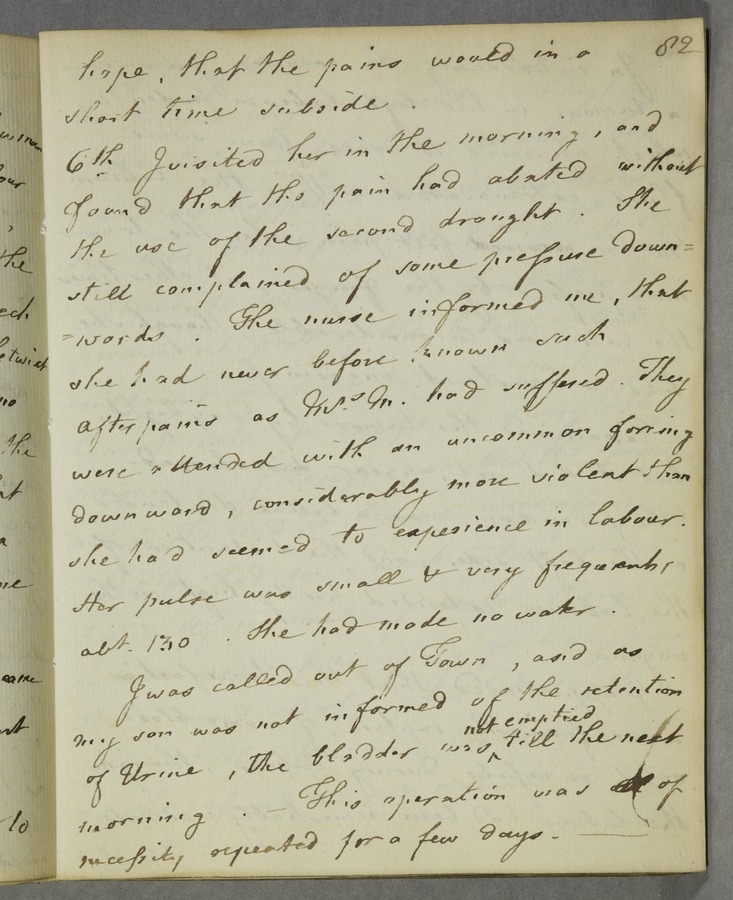 82
hope, that the pains would in a
short time subside.
6th. I visited her in the morning, and
found that the pain had abated without
the use of the second draught. She
still complained of some pressure down=
=wards. The nurse informed me, that
she had never before known such
afterpains as Mrs. M. had suffered. They
were attended with an uncommon forcing
downward, considerably more violent than
she had seemed to experience in labour.
Her pulse was small & very frequent,
abt. 130. She had made no water.
I was called out of Town, and as
my son was not informed of the retention
not emptied
of Urine, the bladder was ^ till the next
morning. — This operation was of
necessity repeated for a few days. —